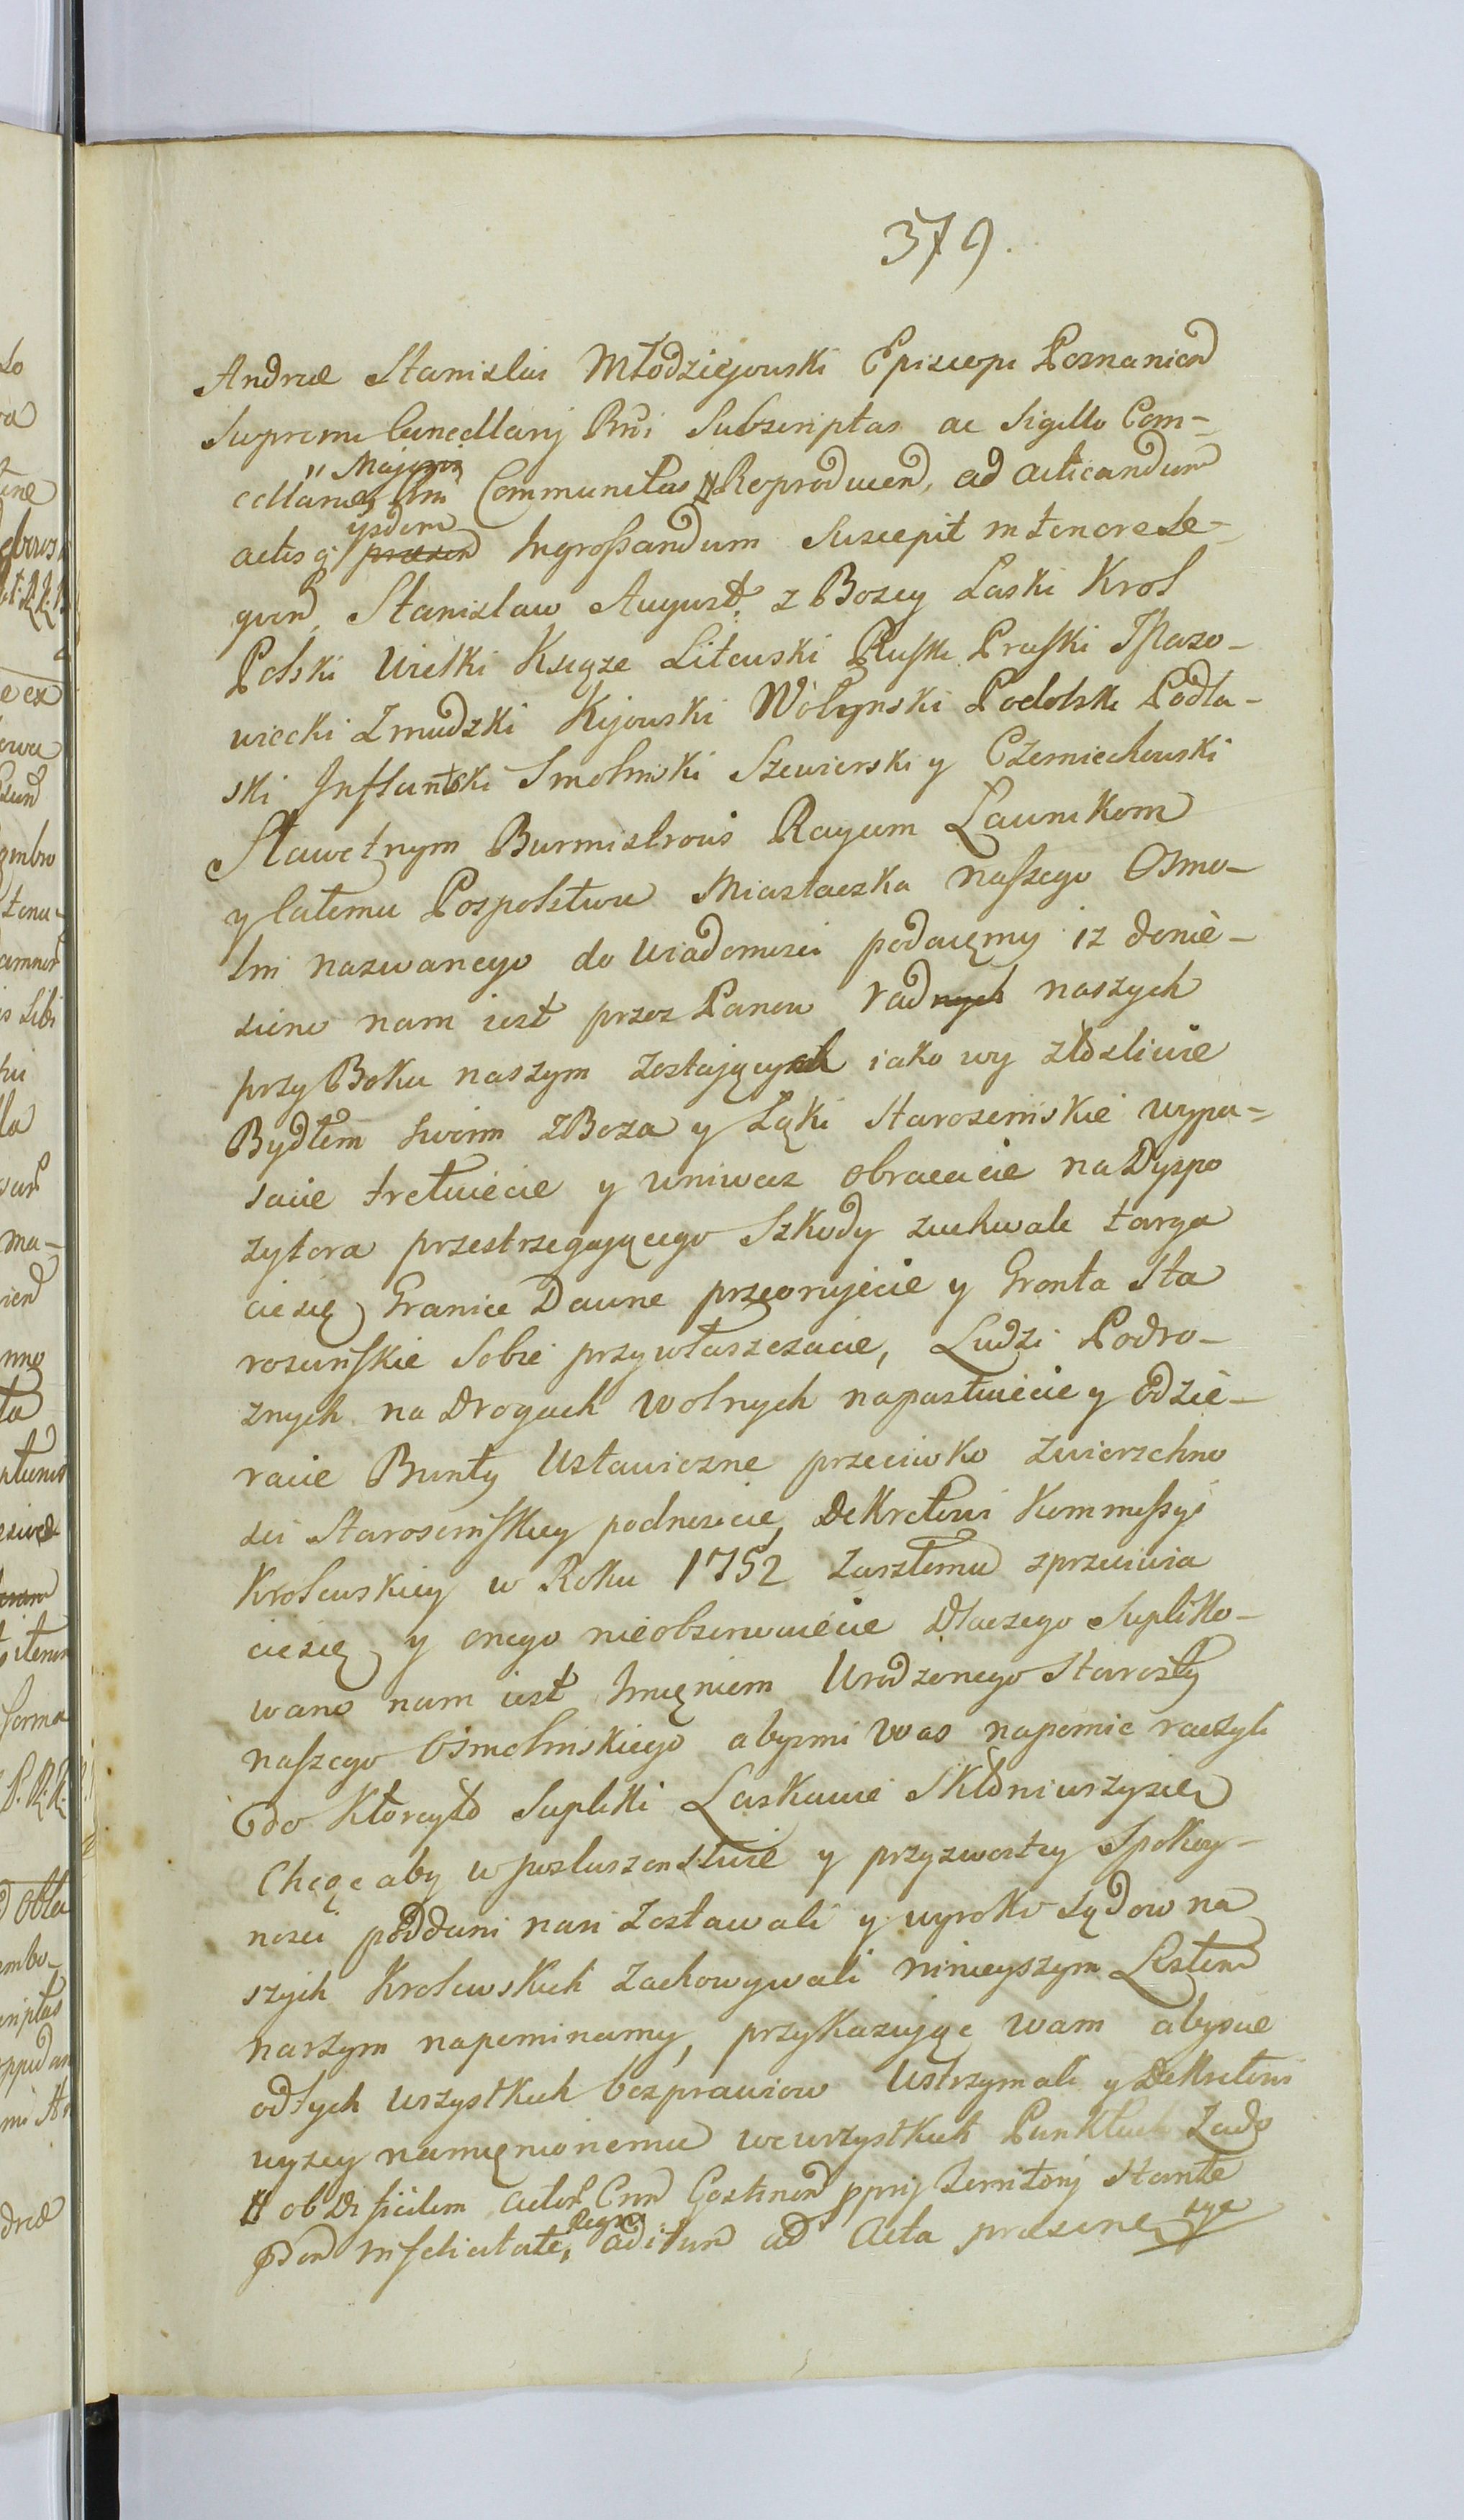 379.
Andreæ Stanislai Młodziejowski Episcopi Posnanien
Supremi Cancellarij Rni Subscriptas ac Sigillo Can-
cellariæ Majoris Rni Communitas # Reproducen, ad acticandum
actis q̃ ijsdem præsen Ingrossandum Suscepit in tenore Se-
quen, Stanislaw August z Bozey Łaski Krol
Polski Wielki Xsiąze Litewski Ruski Pruski Mazo-
wiecki Zmudzki Kijowski Wołynski Podolski Podla-
ski Inflantski Smolinski Siewierski y Czerniechowski
Sławetnym Burmistrowi Raycum Ławnikom
y całemu Pospolstwu Miasteczka naszego Osmo-
lni nazwanego do wiadomosci podaięmy iz donie-
siono nam iest przez Panow Radnych naszych
przy Boku naszym zostających iako wy złosliwie
Bydłem swoim zBoza y Łąki Starosciniskie wypa-
sacie tretuiecie y wniwecz obracacie na Dyspo
zytora przestrzegającego Szkody zuchwale targa
cie się Granice Dawne przeorujecie y Gronta Sta
rosciniskie Sobie przywłaszczacie, Ludzi Podro-
znych na Drogach wolnych napastuiecie y odzie-
racie Bunty Ustawiczne przeciwko zwierzchno
sci Starosciniskiey podnosicie, Dekretowi Kommissyi
Krolewskiey w Roku 1752 zaszłemu sprzeciwia
cie się y onego nieobserwuiecie Dlaczego Supliko-
wano nam iest Imięniem Urodzonego Starosty
naszego Osmolinskiego abysmi was napomic raczyli
doKtoreyto Supliki Łaskawie Skłoniwszysię
Chcąc aby w posłuszenstwie y przyzwoitey Spokoy-
nosci poddani nasi zostawali y wyroki Sądow na
szych Krolewskich zachowywali ninieyszym Listem
naszym napominamy, przykazując wam abyscie
od tych wszystkich bezprawiow Ustrzymali y Dekretowi
wyzey namięnionemu we wszystkich Punktach Zado
# ob difficilem actor Cnn Gostinen pprij Territorij Stante
in felicitate, Regni aditum ad Acta præsen
syc